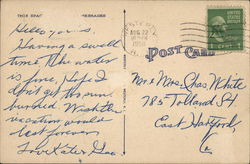 Here's you-s.
Having a swell
time. The water
is fine, Hope I
don't get too sun
burned. Wish the
vacation would
last forever.
Love Kate & Geo.
AUG 22
1950
POST CARD
Mr & Mrs. Chas White
785 Tolland St
East Hartford,